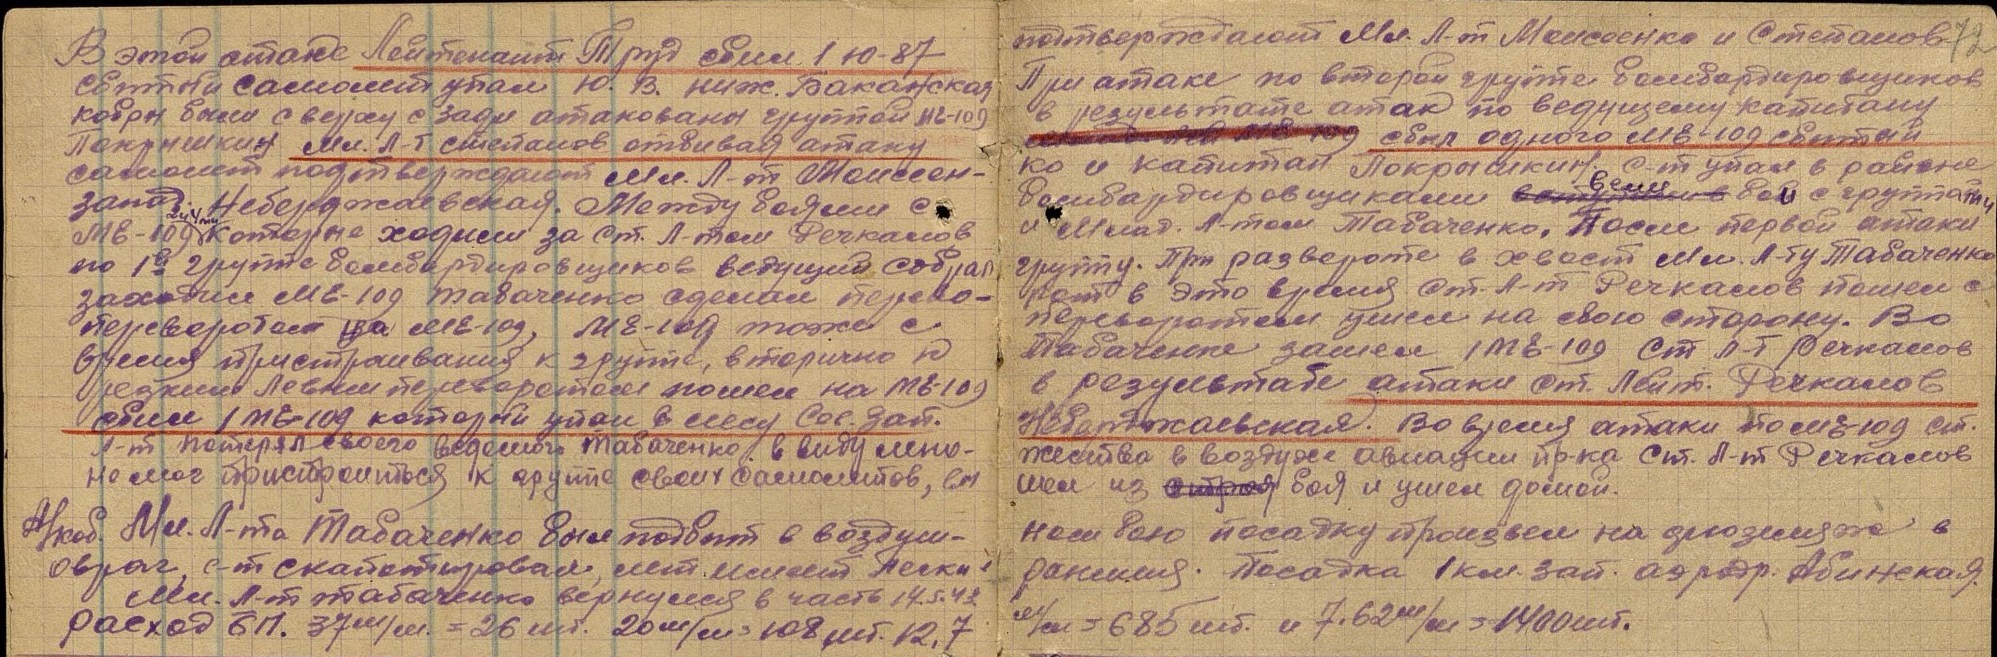 В этой атаке Лейтенант Труд сбил 1 Ю-87 подтверждают Мл. Л-т Моисеенко и Степанов 72
сбитый самолет упал Ю.В. ниж. Баканская При атаке по второй группе бомбардировщиков
кобры были сверху с зади атакованы группой МЕ-109 в результате атак по ведущему капитану
Покрышкин Мл. Л-т Степанов отбивая атаку сбил одного МЕ-109 сбитый
самолет подтверждают Мл. Л-т Моисеен- ко и капитан Покрышкин, с-т упал в районе
запад. Неберджаевская. Между боями с бомбардировщиками вели бои с группами
МЕ-109 которые ходили за Ст. Л-том Речкалов и Млад. Л-том Табаченко. После первой атаки
по 1й группе бомбардировщиков ведущий собрал группу. При развороте в хвост Мл. Л-ту Табаченко
заходил МЕ-109 Табаченко сделал перево- рот в это время Ст. Л-т Речкалов пошел с
переворотом на МЕ-109, МЕ-109 тоже с переворотом ушел на свою сторону. Во
время пристраивания к группе, вторично к Табаченко зашел 1 МЕ-109 Ст. Л-т Речкалов
резким левым переворотом пошел на МЕ-109 в результате атаки Ст. Лейт. Речкалов
сбил 1 МЕ-109 который упал в лесу Сев. Зап. Неберджаевская. Во время атаки по МЕ-109 Ст.
Л-т потерял своего ведомого Табаченко, в виду мно- жества в воздухе авиации пр-ка Ст. Л-т Речкалов
не мог пристроиться к группе своих самолетов, вы шел из боя и ушел домой.
А/коб. Мл. Л-та Табаченко был подбит в воздуш- ном бою посадку произвел на фюзеляж в
овраг, с-т скапотировал, летчик имеет легкие ранения. Посадка 1 км. зап. аэродр. Абинская.
Мл. Л-т Табаченко вернулся в часть 14.5.43.
расход БП. 37м/м. = 26 шт. 20м/м = 108 шт. 12,7 м/м = 685 шт. и 7.62м/м = 1400 шт.